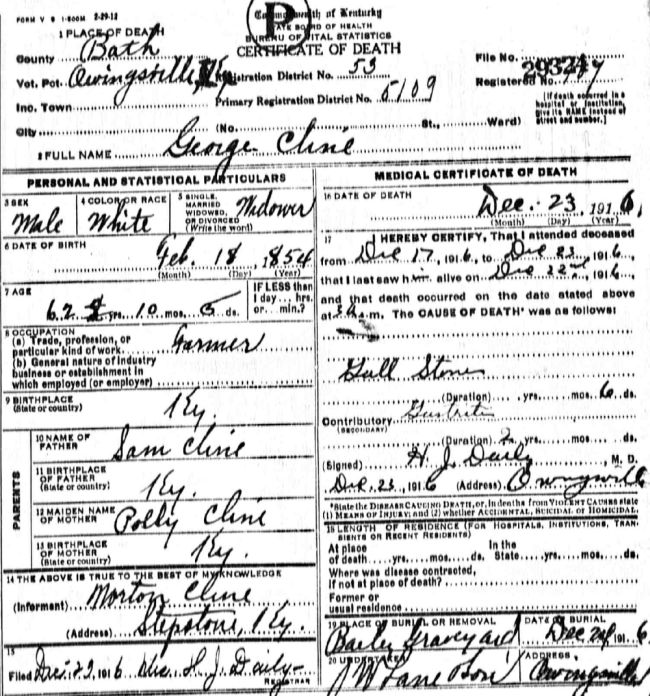 FORM V S 1-500M 2-29-12
P
Commonwealth of Kentucky
STATE BOARD OF HEALTH
BUREAU OF VITAL STATISTICS
CERTIFICATE OF DEATH
1 PLACE OF DEATH
County Bath
Vot. Pct. Owingsville, Ky Registration District No. 53
Inc. Town Primary Registration District No. 5109
City (No. St., Ward)
File No.
Registered No.
[If death occurred in a hospital or institution, give its NAME instead of street and number.]
2 FULL NAME George Cline
PERSONAL AND STATISTICAL PARTICULARS
3 SEX Male
4 COLOR OR RACE White
5 SINGLE, MARRIED WIDOWED, OR DIVORCED (Write the word) Widower
6 DATE OF BIRTH Feb. 18, 1854
(Month) (Day) (Year)
7 AGE 62 yrs. 10 mos. 5 ds.
IF LESS than 1 day... hrs. or... min.?
8 OCCUPATION
(a) Trade, profession, or particular kind of work Farmer
(b) General nature of industry business or establishment in which employed (or employer)
9 BIRTHPLACE (State or country) Ky.
PARENTS
10 NAME OF FATHER Sam Cline
11 BIRTHPLACE OF FATHER (State or country) Ky.
12 MAIDEN NAME OF MOTHER Polly Cline
13 BIRTHPLACE OF MOTHER (State or country) Ky.
14 THE ABOVE IS TRUE TO THE BEST OF MY KNOWLEDGE
(Informent) Morton Cline
(Address) Stepstone, Ky.
15
Filed Dec. 23, 1916 H. J. Daily
REGISTRAR
MEDICAL CERTIFICATE OF DEATH
16 DATE OF DEATH Dec. 23, 1916,
(Month) (Day) (Year)
17 I HEREBY CERTIFY, That I attended deceased
from Dec 17, 1916, to Dec 23, 1916,
that I last saw him alive on Dec 22nd, 1916,
and that death occurred on the date stated above
at a.m. The CAUSE OF DEATH* was as follows:
Gall Stones
(Duration) yrs. mos. 6 ds.
Contributory Gastritis
(SECONDARY)
(Duration) 2 yrs. mos. ds.
(Signed) H. J. Daily M. D.
Dec. 23, 1916 (Address) Owingsville
*State the DISEASE CAUSING DEATH, or, in deaths from VIOLENT CAUSES state (1) MEANS OF INJURY; and (2) whether ACCIDENTAL, SUICIDAL or HOMICIDAL.
18 LENGTH OF RESIDENCE (FOR HOSPITALS, INSTITUTIONS, TRANSIENTS OR RECENT RESIDENTS)
At place of death....yrs....mos....ds. In the State....yrs....mos....ds.
Where was disease contracted, if not at place of death?
Former or usual residence
19 PLACE OF BURIAL OR REMOVAL Baily Graveyard
DATE OF BURIAL Dec 24, 1916
20 UNDERTAKER J W Lane & Son
ADDRESS Owingsville